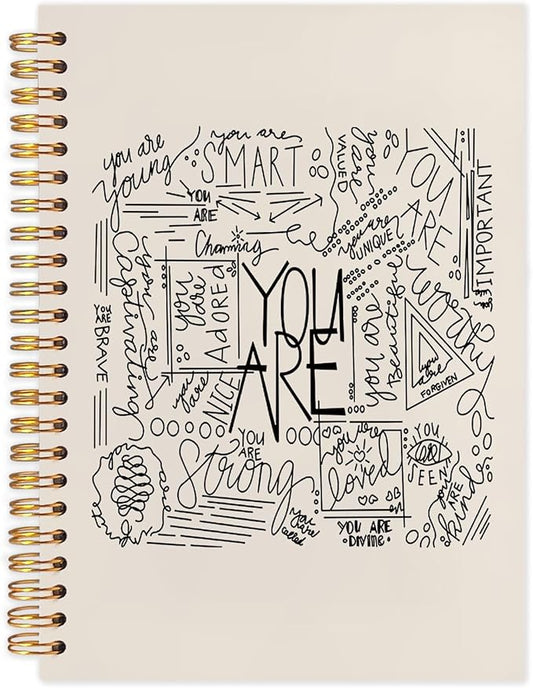 you are
young
you are
SMART
you are
VALUED
YOU
ARE
IMPORTANT
YOU
ARE
Charming
you are
UNIQUE
you are
worthy
you are
Captivating
you are
ADORED
YOU
ARE
you are
Beautiful
YOU
ARE
BRAVE
you
are
NICE
you
are
FORGIVEN
YOU
ARE
Strong
you are
loved
YOU
SEEN
you
ARE
kind
you
are
called
YOU ARE
DIVINE